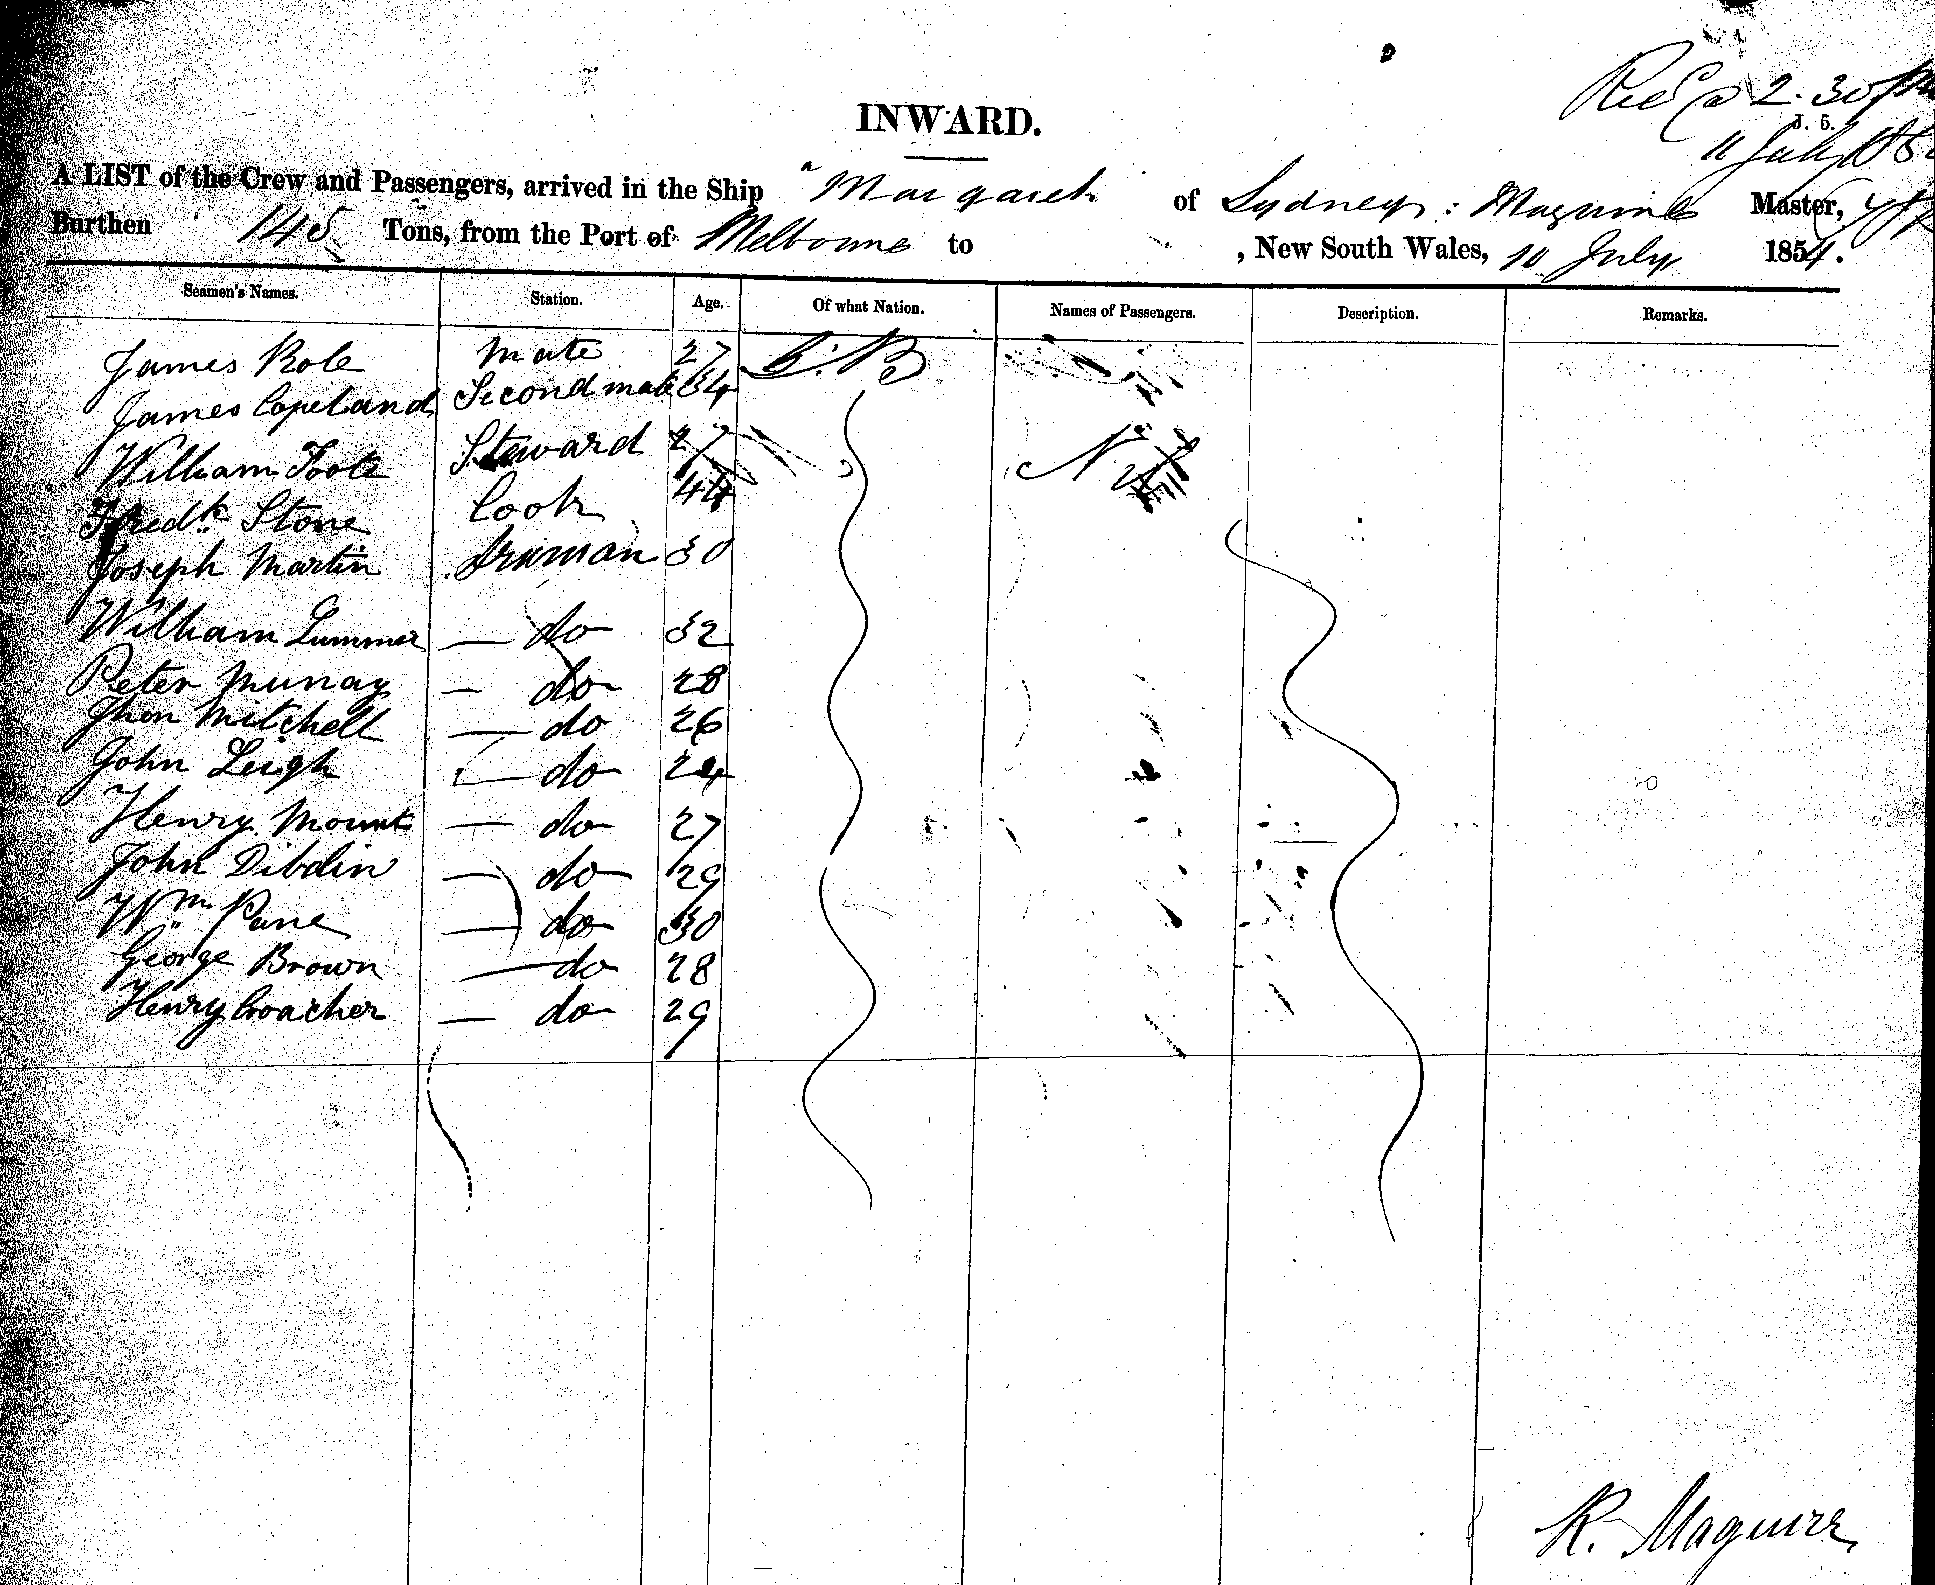 Recd @ 2.30 pm
J. 5.
11 July
INWARD.
A LIST of the Crew and Passengers, arrived in the Ship "Margaret of Sydney: Maguire Master,
Burthen 145 Tons, from the Port of Melbourne to , New South Wales, 10 July 1854.
Seamen's Names. Station. Age. Of what Nation. Names of Passengers. Description. Remarks.
James Role Mate 27 G.B
James Copeland Second mate 34
William Toole Steward 27 Nil
Fredk Stone Cook 44
Joseph Martin Seaman 30
William Lummer do 32
Peter Murray do 28
Jhon Mitchell do 26
John Leigh do 24
Henry Mount do 27
John Dibdin do 29
Wm Pane do 30
George Brown do 28
Henry Croacher do 29
R. Maguire